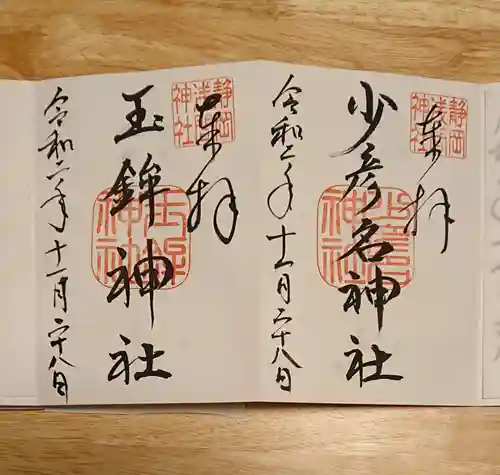 奉拝
静岡
浅間
神社
少彦名神社
令和二年十一月二十八日
奉拝
静岡
浅間
神社
玉鉾神社
令和二年十一月二十八日